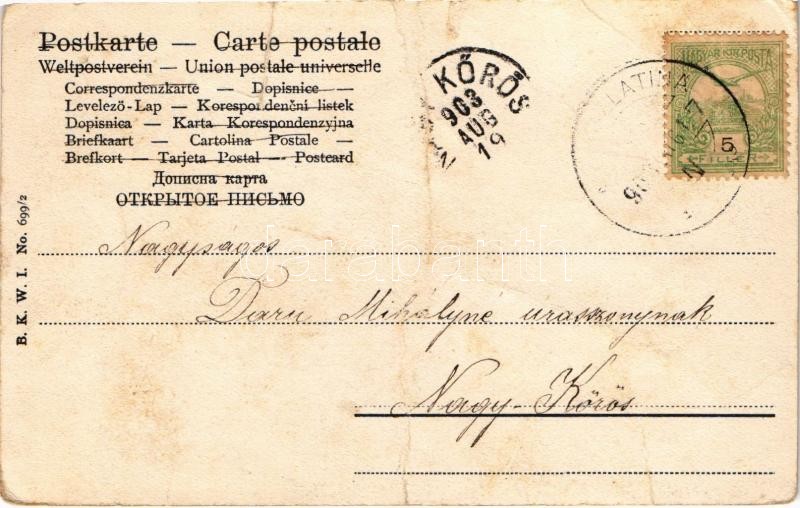 Postkarte — Carte postale
Weltpostverein — Union postale universelle
Correspondenzkarte — Dopisnice —
Levelező-Lap — Korespondenční listek
Dopisnica — Karta Korespondenzyjna
Briefkaart — Cartolina Postale —
Brefkort — Tarjeta Postal — Postcard
Дописна карта
ОТКРЫТОЕ ПИСЬМО
KŐRÖS
903
AUG
19
LATINA
MAGYAR KIR. POSTA
5
FILLÉR
B. K. W. I. No. 699/2
Nagyságos
Daru Mihályné uraszonynak
Nagy-Kőrös
darabanth